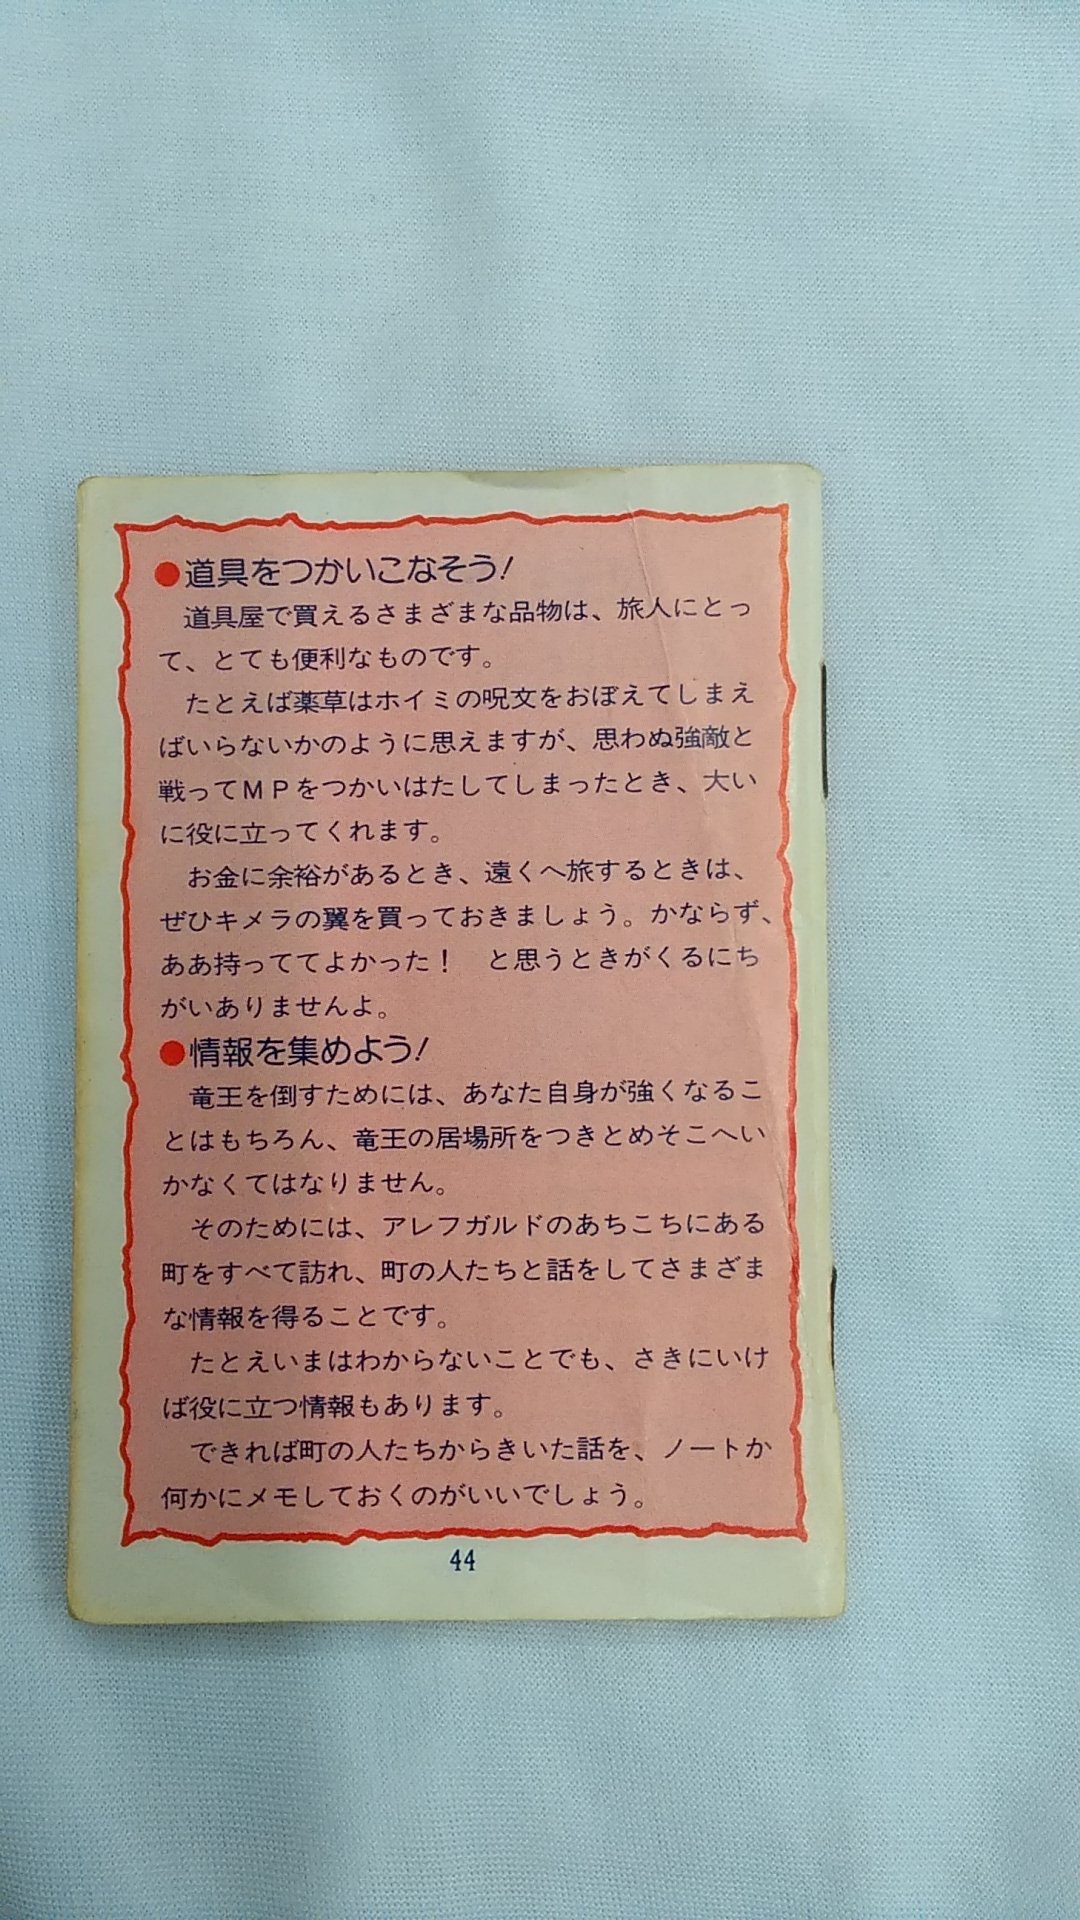 ●道具をつかいこなそう!
道具屋で買えるさまざまな品物は、旅人にとっ
て、とても便利なものです。
たとえば薬草はホイミの呪文をおぼえてしまえ
ばいらないかのように思えますが、思わぬ強敵と
戦ってMPをつかいはたしてしまったとき、大い
に役に立ってくれます。
お金に余裕があるとき、遠くへ旅するときは、
ぜひキメラの翼を買っておきましょう。かならず、
ああ持っててよかった! と思うときがくるにち
がいありませんよ。
●情報を集めよう!
竜王を倒すためには、あなた自身が強くなるこ
とはもちろん、竜王の居場所をつきとめそこへい
かなくてはなりません。
そのためには、アレフガルドのあちこちにある
町をすべて訪れ、町の人たちと話をしてさまざま
な情報を得ることです。
たとえいまはわからないことでも、さきにいけ
ば役に立つ情報もあります。
できれば町の人たちからきいた話を、ノートか
何かにメモしておくのがいいでしょう。
44